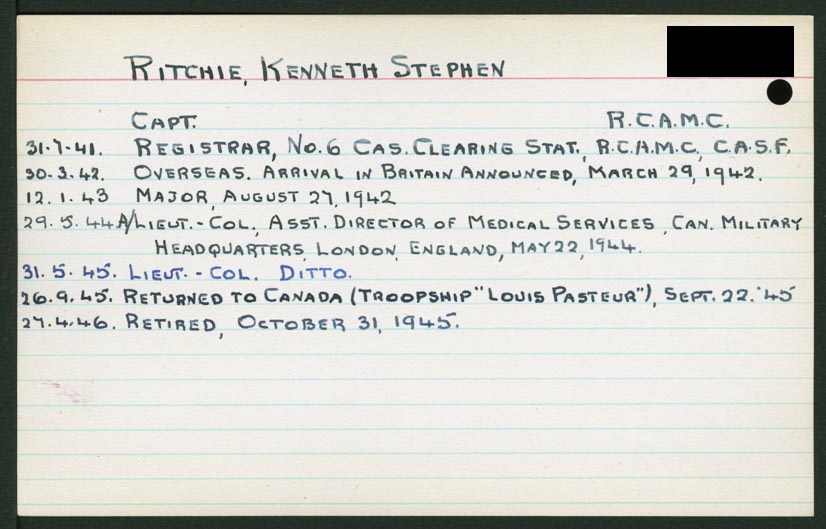 RITCHIE, KENNETH STEPHEN
CAPT. R.C.A.M.C.
31.7.41. REGISTRAR, NO.6 CAS. CLEARING STAT., R.C.A.M.C., C.A.S.F.
30.3.42. OVERSEAS. ARRIVAL IN BRITAIN ANNOUNCED, MARCH 29, 1942.
12.1.43 MAJOR, AUGUST 27, 1942
29.5.44 A/LIEUT.-COL., ASST. DIRECTOR OF MEDICAL SERVICES, CAN. MILITARY
HEADQUARTERS, LONDON, ENGLAND, MAY 22, 1944.
31.5.45. LIEUT.-COL. DITTO.
26.9.45. RETURNED TO CANADA (TROOPSHIP "LOUIS PASTEUR"), SEPT. 22. '45
27.4.46. RETIRED, OCTOBER 31, 1945.